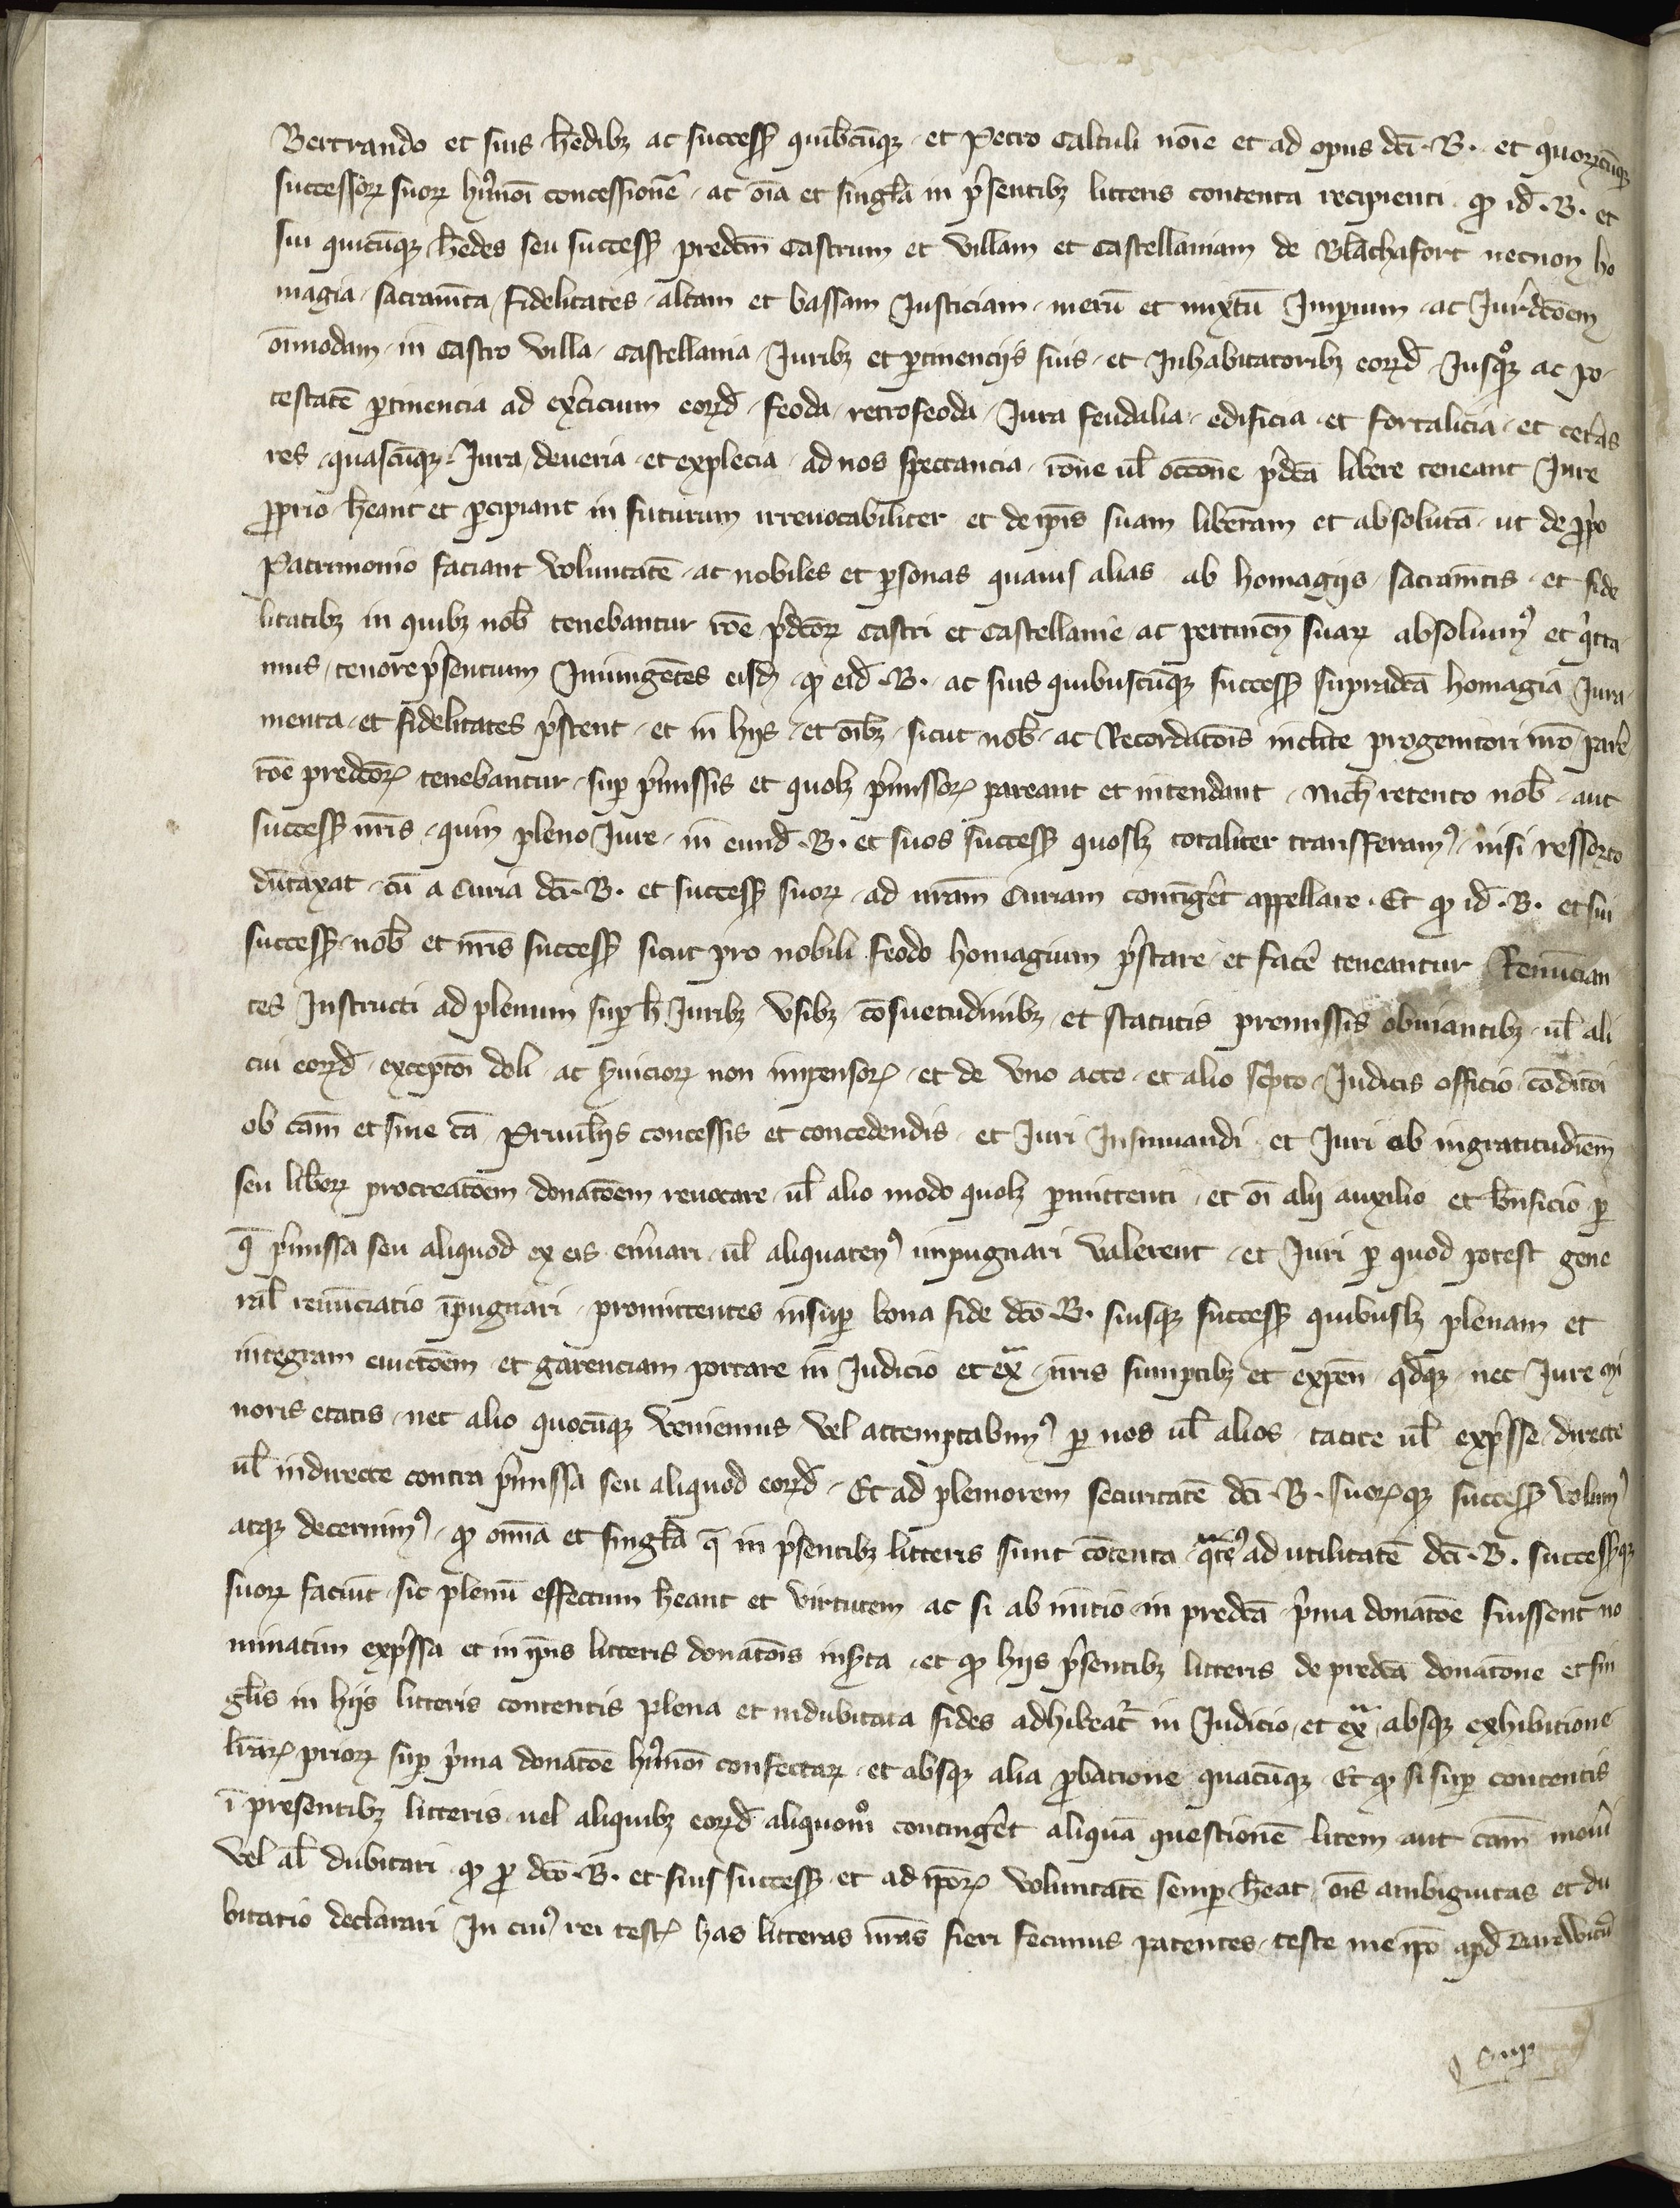 Bertrando et suis hedibꝫ ac success̄ quibcūqꝫ et Petro Calculi noīe et ad opus dc̄i .B. et quorꝝcūqꝫ
successorꝝ suorꝝ huiꝰmoī concessionē ac oīa et singl̄a in p̄sentibꝫ litteris contenta recipienti ꝙ id̄ .B. et
sui quicūqꝫ h̄edes seu success̄ predcm̄ Castrum et villam et Castellaniam de Blāchafort necnon ho
magia sacramn̄ta fidelitates altam et bassam Justiciam merū et mixtū Imperium ac Jurꝰdcōem
oīmodam in Castro villa Castellania Juribꝫ et ꝑtinencijs suis et Inhabitatoribꝫ eorꝝd̄ Jusqꝫ ac po
testatē ꝑtinencia ad ex̄cicium eorꝝd̄ feoda retrofeoda Jura feudalia edificia et fortalicia et cet̄as
res quascūqꝫ Jura deueria et explecia ad nos spectancia rōne ul̄ occōne p̄dcā libere teneant Jure
ꝓprio h̄eant et ꝑcipiant in futurum irreuocabiliter et de ip̄is suam liberam et absolutā ut de ꝓp̄o
Patrimonio faciant voluntatē ac nobiles et ꝑsonas quauis alias ab homagijs sacramn̄tis et fide
litatibꝫ in quibꝫ nob̄ tenebantur rōe p̄dcōrꝝ castri et Castellanie ac pertinen̄ suarꝝ absoluimꝰ et q̄tta
mus tenore p̄sentium Iniungētes eisd̄ ꝙ eid̄ .B. ac suis quibuscūqꝫ success̄ supradcā homagia Jura
menta et fidelitates p̄stent et in hijs et oībꝫ sicut nob̄ ac Recordatōis inclite progenitori nr̄o par̄e
rōe predcōrꝝ tenebantur suꝑ p̄missis et quolꝫ p̄missorꝝ pareant et intendant Nich̄ retento nob̄ aut
success̄ nr̄is quin pleno Jure in eund̄ .B. et suos success̄ quoslꝫ totaliter transferamꝰ nisi ressorto
dūtaxat cū a Curia dc̄i .B. et success̄ suorꝝ ad nr̄am Curiam contīḡet appellare Et ꝙ id̄ .B. et sui
success̄ nob̄ et nr̄is success̄ sicut pro nobili feodo homagium p̄stare et fac̄e teneantur Renūcian
tes Instructi ad plenum suꝑ h̄ Juribꝫ vsibꝫ cōsuetudinibꝫ et statutis premissis obuiantibꝫ ul̄ ali
cui eorꝝd̄ exceptōi doli ac s̄uiciorꝝ non impensorꝝ et de vno acto et alio sc̄pto Judicis officio cōditōi
ob cām et sine cā Priuil̄ijs concessis et concedendis et Juri Insinuandi et Juri ob ingratitudīem
seu lib̄orꝝ procreatōem donatōem reuocare ul̄ alio modo quolꝫ ꝑmittenti et oī alij auxilio et bn̄ficio ꝑ
q̄ p̄missa seu aliquod ex eis en̄uari ul̄ aliquatenꝰ impugnari valerent et Juri ꝑ quod potest gene
ral̄ renūciatio īpugnari promittentes insuꝑ bona fide dcō .B. suisqꝫ success̄ quibuslꝫ plenam et
integram euictōem et garenciam portare in Judicio et exᵃ nr̄is sumptibꝫ et expen̄ qd̄qꝫ nec Jure mi
noris etatis nec alio quocūqꝫ veniemus vel attemptabimꝰ ꝑ nos ul̄ alios tacite ul̄ exp̄sse directe
ul̄ indirecte contra p̄missa seu aliquod eorꝝd̄ Et ad pleniorem securitatē dc̄i .B. suorꝝqꝫ success̄ volumꝰ
atqꝫ decernimꝰ ꝙ omīa et singl̄a q̄ in p̄sentibꝫ litteris sunt cōtenta qᵃtēꝰ ad utilitatē dc̄i .B. success̄qꝫ
suorꝝ faciūt sic plenū effectum h̄eant et virtutem ac si ab initio in predcā p̄ma donatōe fuissent no
minatim exp̄ssa et in ip̄is litteris donatōis ins̄ta et ꝙ hijs p̄sentibꝫ litteris de predcā donatōne et sin
gl̄is in hijs litteris contentis plena et indubitata fides adhibeat̄ in Judicio et exᵃ absqꝫ exhibitione
lr̄arꝝ priorꝝ suꝑ p̄ma donatōe huiꝰmoī confectarꝝ et absqꝫ alia ꝓbacione quacūqꝫ Et ꝙ si suꝑ contentis
ī presentibꝫ litteris uel aliquibꝫ eorꝝd̄ aliquomº continḡet aliquā questionē litem aut cām moūi
vel al̄ dubitari ꝙ ꝓ dcō .B. et suis success̄ et ad ip̄orꝝ voluntatē semꝑ h̄eat oīs ambiguitas et du
bitatio declarari In cuiꝰ rei testꝝ has litteras nr̄as fieri fecimus patentes teste me ip̄o apd̄ Bardwicū
Suꝑ